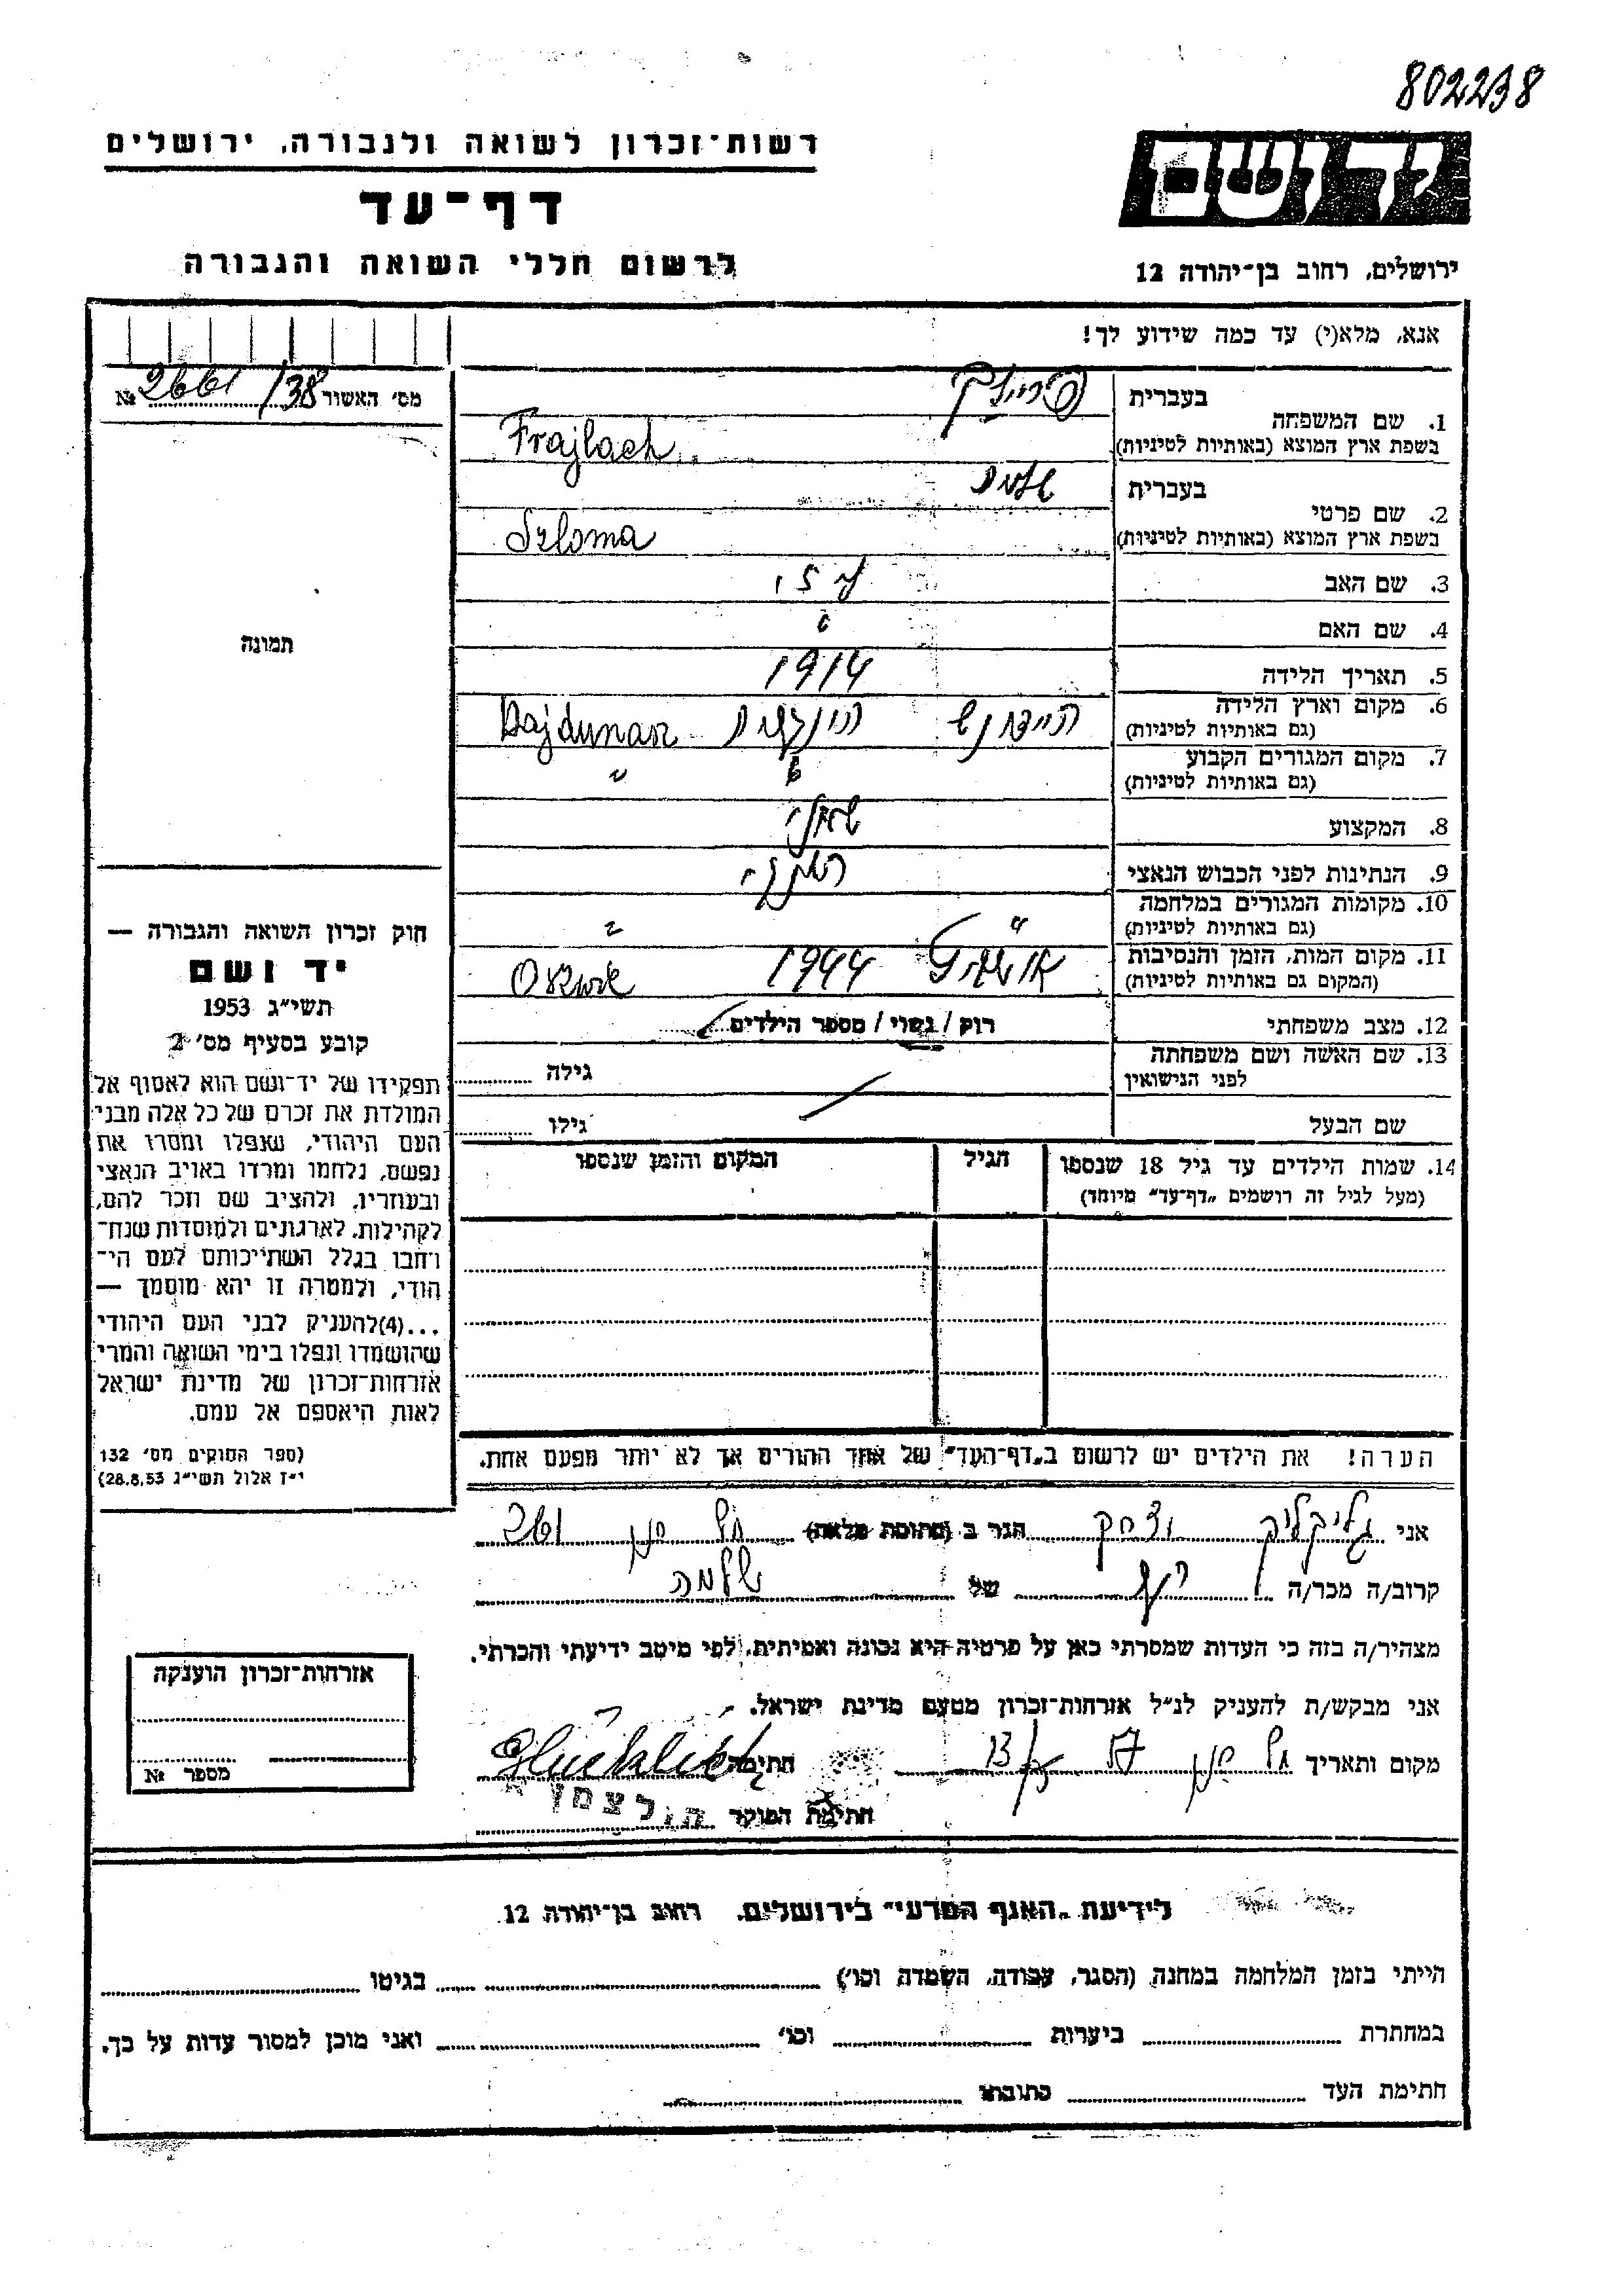 802238
יד ושם
רשות־זכרון לשואה ולגבורה, ירושלים
דף־עד
לרשום חללי השואה והגבורה
ירושלים, רחוב בן־יהודה 12
אנא, מלא(י) עד כמה שידוע לך!
מס' האשור 2661/38 №
1. שם המשפחה
בעברית פריילך
בשפת ארץ המוצא (באותיות לטיניות) Frajlach
2. שם פרטי
בעברית שלמה
בשפת ארץ המוצא (באותיות לטיניות) Szloma
3. שם האב
4. שם האם
5. תאריך הלידה 1914
6. מקום וארץ הלידה
(גם באותיות לטיניות)
7. מקום המגורים הקבוע
(גם באותיות לטיניות)
8. המקצוע
9. הנתינות לפני הכבוש הנאצי
10. מקומות המגורים במלחמה
(גם באותיות לטיניות)
11. מקום המות, הזמן והנסיבות 1944
(המקום גם באותיות לטיניות)
12. מצב משפחתי רוק / נשוי / מספר הילדים
13. שם האשה ושם משפחתה
לפני הנישואין גילה
שם הבעל גילו
14. שמות הילדים עד גיל 18 שנספו הגיל המקום והזמן שנספו
(מעל לגיל זה רושמים "דף־עד" מיוחד)
תמונה
חוק זכרון השואה והגבורה —
יד ושם
תשי"ג 1953
קובע בסעיף מס' 2
תפקידו של יד־ושם הוא לאסוף אל
המולדת את זכרם של כל אלה מבני
העם היהודי, שנפלו ומסרו את
נפשם, נלחמו ומרדו באויב הנאצי
ובעוזריו, ולהציב שם וזכר להם,
לקהילות, לארגונים ולמוסדות שנח־
רחבו בגלל השתייכותם לעם הי־
הודי, ולמטרה זו יהא מוסמך —
...(4)להעניק לבני העם היהודי
שהושמדו ונפלו בימי השואה והמרי
אזרחות־זכרון של מדינת ישראל
לאות היאספם אל עמם.
(ספר החוקים מס' 132
י"ז אלול תשי"ג 28.8.53)
הערה! את הילדים יש לרשום ב"דף־העד" של אחד ההורים אך לא יותר מפעם אחת.
אני גליקליק יצחק הגר ב (כתובת מלאה)
קרוב/ה מכר/ה של שלמה
מצהיר/ה בזה כי העדות שמסרתי כאן על פרטיה היא נכונה ואמיתית, לפי מיטב ידיעתי והכרתי.
אני מבקש/ת להעניק לנ"ל אזרחות־זכרון מטעם מדינת ישראל.
מקום ותאריך חתימה Glücklich
חתימת הפוקד הולצמן
אזרחות־זכרון הוענקה
מספר №
לידיעת "האגף המדעי" בירושלים, רחוב בן־יהודה 12
הייתי בזמן המלחמה במחנה (הסגר, עבודה, השמדה וכו') בגיטו
במחתרת ביערות וכו' ואני מוכן למסור עדות על כך.
חתימת העד כתובתו